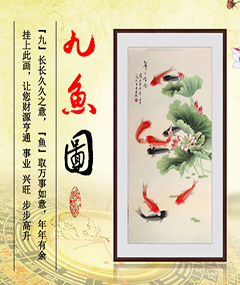 九鱼图
『九』长长久久之意，『鱼』取万事如意，年年有余
挂上此画，让您财源亨通 事业 兴旺 步步高升